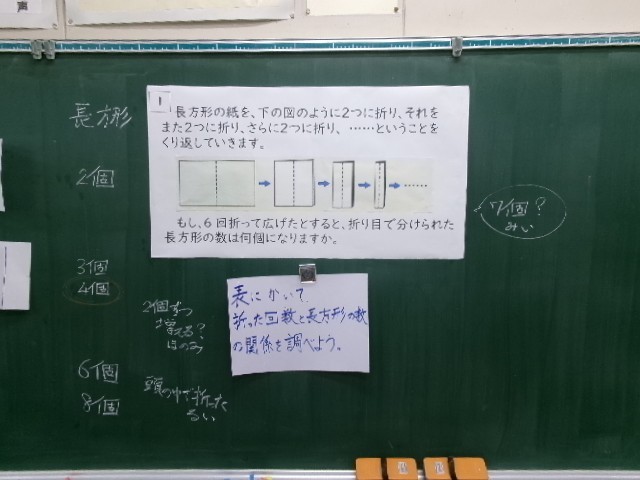 声
長方形
2個
3個
4個
6個
8個
1
長方形の紙を、下の図のように2つに折り、それを
また2つに折り、さらに2つに折り、……ということを
くり返していきます。
……
もし、6回折って広げたとすると、折り目で分けられた
長方形の数は何個になりますか。
7個?
みい
2個ずつ
増える?
ほのみ
頭の中で折った
るい
表にかいて
折った回数と長方形の数
の関係を調べよう。